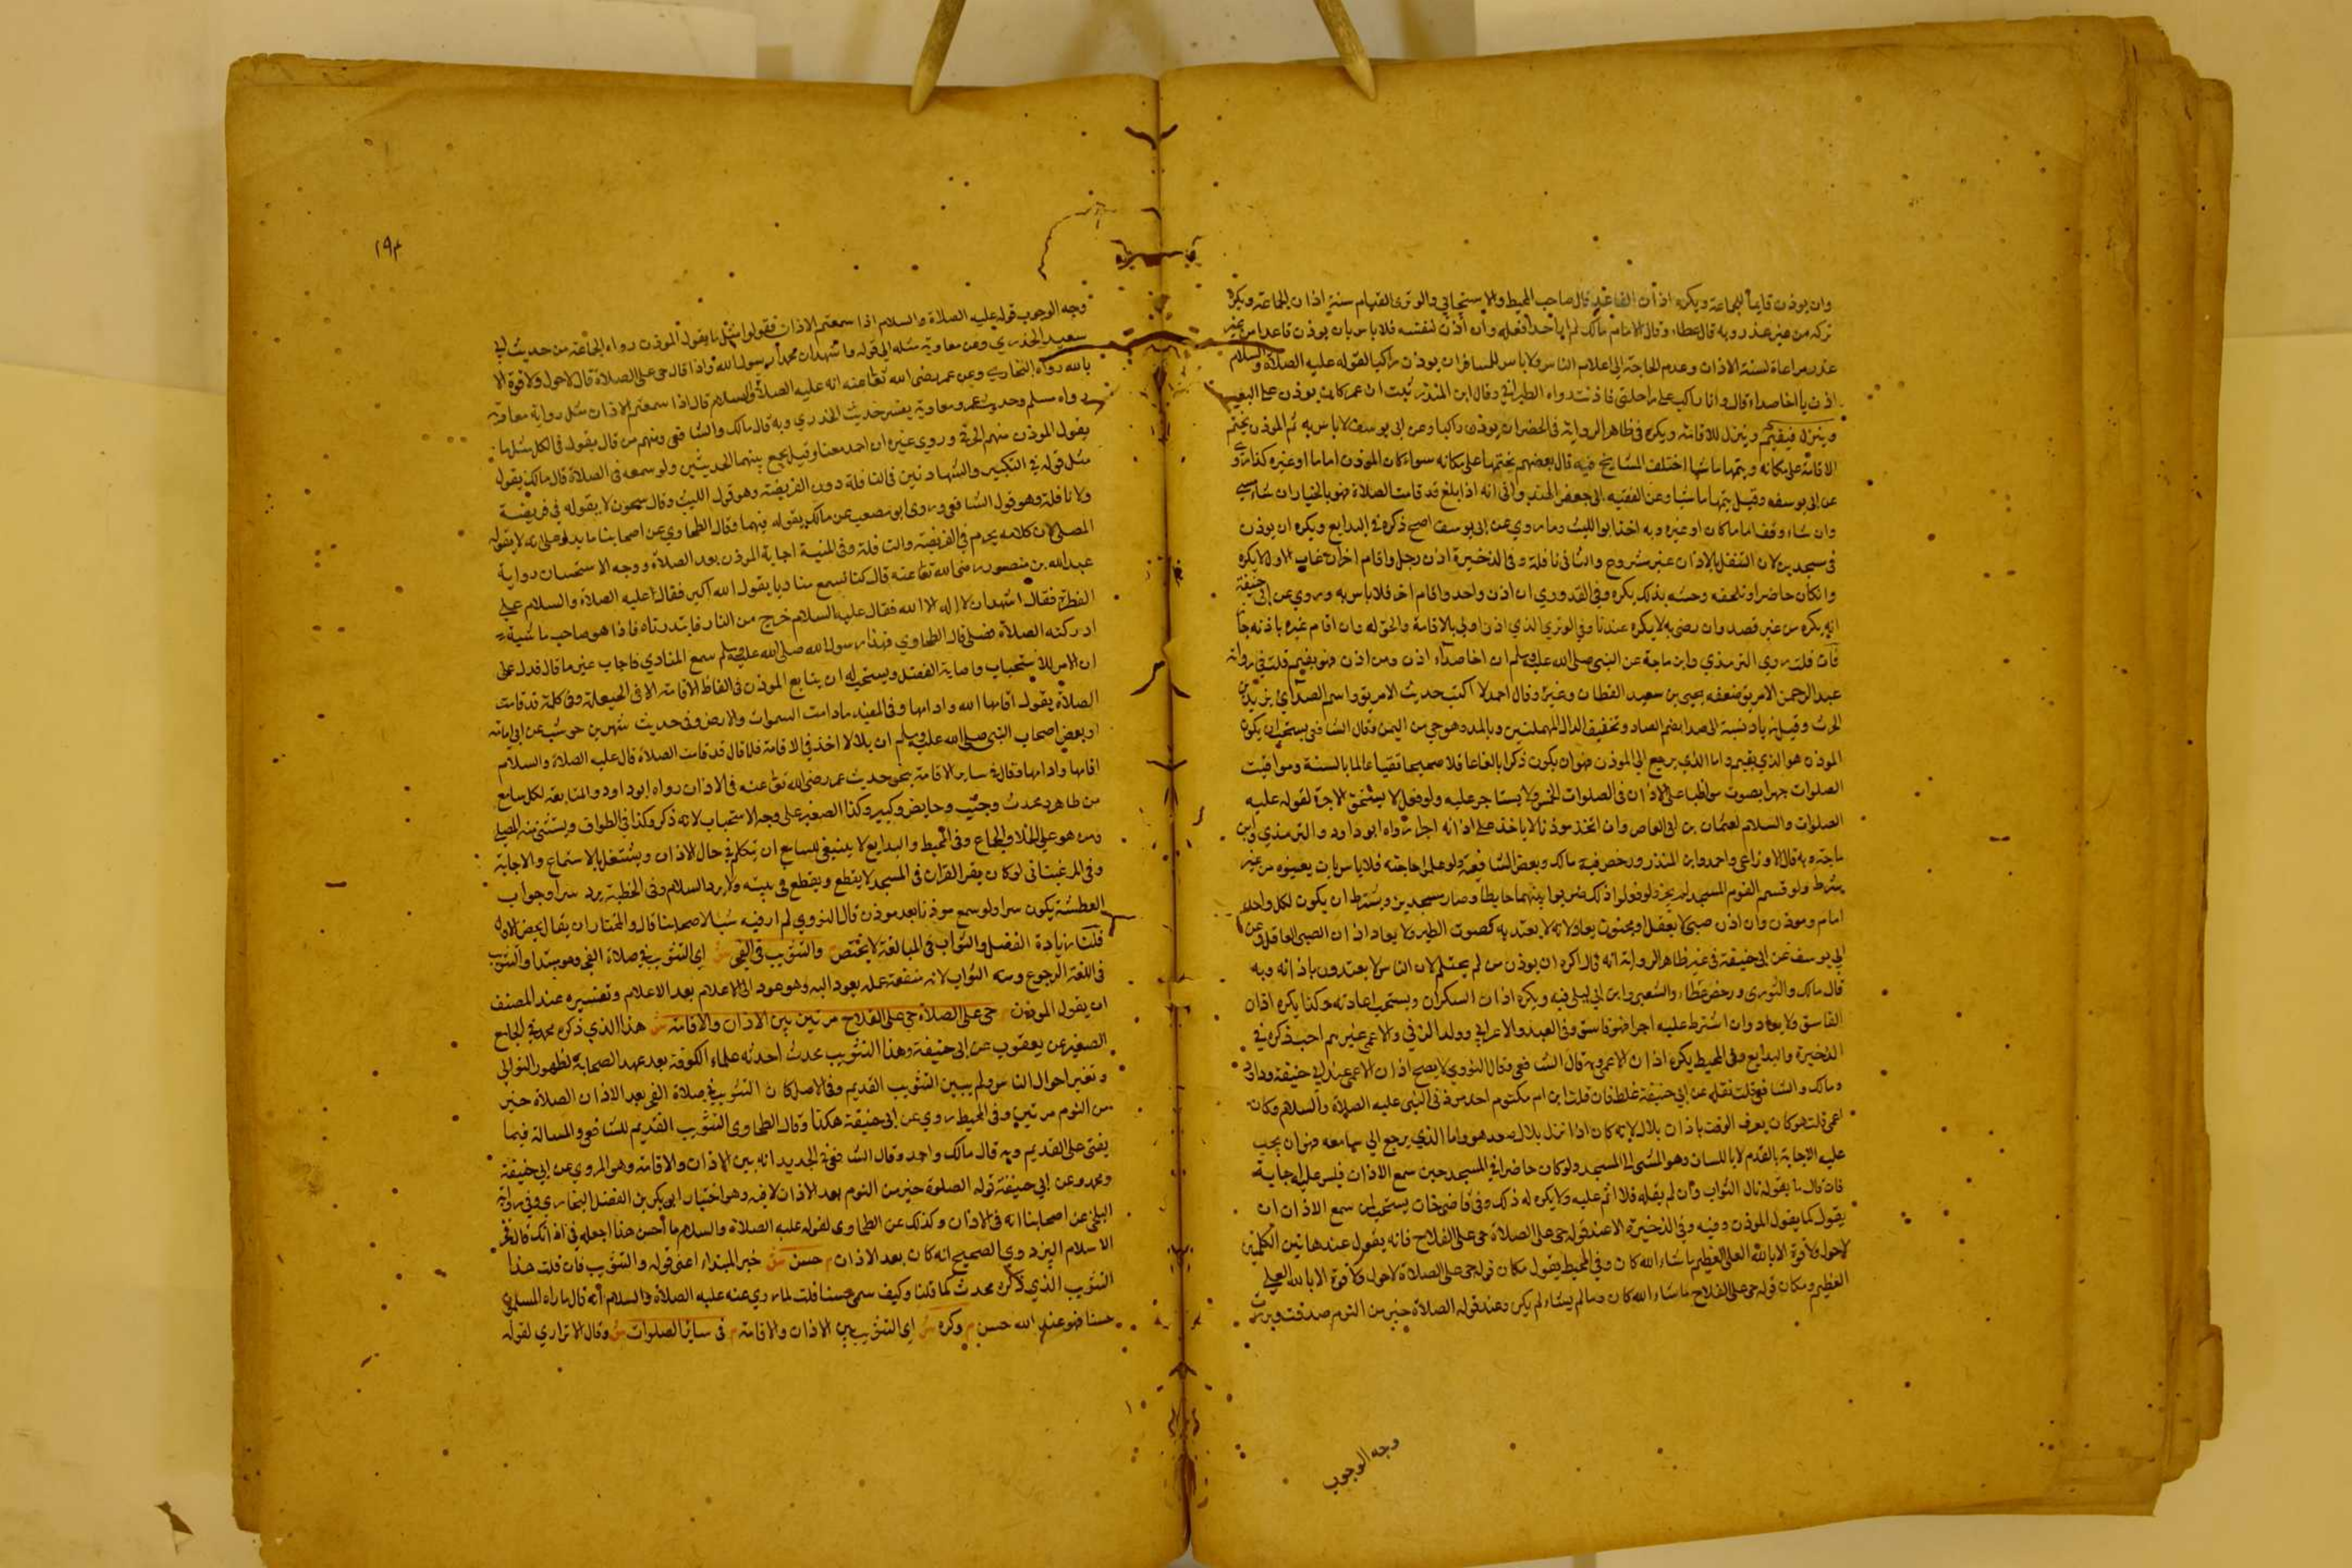 وان يوذن قايماً للجماعة ويكره اذان القاعد قال صاحب المحيط والاسبيجابي والوترى القيام سنة اذان الجماعة ويكره
تركه من غير عذر وبه قال عطاء وقال الامام مالك لم ار احدا فعله وان أذن لنفسه فلا باس بان يوذن قاعدا من غير
عذر مراعاة لسنة الاذان وعدم الحاجة الى اعلام الناس ولا باس للمسافر ان يوذن راكبا لقوله عليه الصلاة والسلام
اذن يا اخا صداء قال وانا راكب على راحلتى فاذنت رواه الطبراني وقال ابن المنذر ثبت ان عمر كان يوذن على البعير
وينزل فيقيم وينزل للاقامة ويكره فى ظاهر الرواية فى الحضر ان يوذن راكبا وعن ابى يوسف لا باس به ثم الموذن يختم
الاقامة على مكانه ويتمها ماشيا اختلف المشايخ فيه قال بعضهم يختمها على مكانه سواء كان الموذن اماما او غيره كذا روى
عن ابى يوسف وقيل يتمها ماشيا وعن الفقيه ابى جعفر الهندوانى انه اذا بلغ قد قامت الصلاة فهو بالخيار ان شاء مشى
وان شاء وقف اماما كان او غيره وبه اخذ ابو الليث وما روي عن ابى يوسف اصح ذكره فى البدايع ويكره ان يوذن
فى مسجدين لان التنفل بالاذان غير مشروع والثانى نافلة وفى الذخيرة اذن رجل واقام اخر ان غاب الاول لا يكره
وان كان حاضرا وتلحقه وحشه بذلك يكره وفى القدوري ان اذن واحد واقام اخر فلا باس به وروي عن ابى حنيفة
انه يكره من غير قصد وان رضى به لا يكره عندنا وفى الوتري الذي اذن اولى بالاقامة والحق له وان اقام غيره باذنه جاز
فان قلت روي الترمذي وابن ماجة عن النبى صلى الله عليه وسلم ان اخا صداء اذن ومن اذن فهو يقيم قلت فى رواته
عبد الرحمن الافريقي ضعفه يحيى بن سعيد القطان وغيره وقال احمد لا اكتب حديث الافريقي واسم الصدائي زياد بن
الحرث وقيل زياد نسبة الى صدا بضم الصاد وتخفيف الدال المهملتين وبالمد وهو حي من اليمن وقال الشافعى يستحب ان يكون
الموذن هو الذي يقيم واما الذي يرجع الى الموذن فهو ان يكون ذكرا بالغا عاقلا صحيحا تقيا عالما بالسنة ومواقيت
الصلوات جهرا بصوت مواظبا على الاذان فى الصلوات الخمس ولا يستاجر عليه ولو فعل لا يستحق الاجرة لقوله عليه
الصلوات والسلام لعثمان بن ابى العاص وان اتخذ موذنا لا ياخذ على اذانه اجرا رواه ابو داود والترمذي وابن
ماجة وبه قال الاوزاعى واحمد وابن المنذر ورخص فيه مالك وبعض الشافعية ولو علموا حاجته فلا باس بان يعينوه من غير
شرط ولو قسم القوم المسجد لم يجز ولو فعلوا ذلك ضربوا بينهما حايطا وصار مسجدين ويشترط ان يكون لكل واحد
امام وموذن وان اذن صبى لا يعقل او مجنون يعاد لانه لا يعتد به كصوت الطير ولا يعاد اذان الصبى العاقل وعن
ابى يوسف عن ابى حنيفة فى غير ظاهر الرواية انه قال اكره ان يوذن من لم يحتلم لان الناس لا يعتدون باذانه وبه
قال مالك والثوري ورخص عطاء والشعبي وابن ابى ليلى فيه ويكره اذان السكران ويستحب اعادته وكذا يكره اذان
الفاسق ولا يعاد وان اشترط عليه اجرا فهو فاسق وفى العبد والاعرابي وولد الزنى والاعمى غيرهم احب ذكره فى
الذخيرة والبدايع وفى المحيط يكره اذان الاعمى وبه قال الشافعى وقال النووي لا يصح اذان الاعمى عند ابى حنيفة وداود
ومالك والشافعى قلت نقله عن ابى حنيفة غلط فان قلت ابن ام مكتوم احد موذنى النبى عليه الصلاة والسلام وكان
اعمى قلت هو كان يعرف الوقت باذان بلال لانه كان اذا نزل بلال صعد هو واما الذي يرجع الى سامعه فهو ان يجب
عليه الاجابة بالقدم لا باللسان وهو المشى الى المسجد ولو كان حاضرا فى المسجد حين سمع الاذان فليس عليه اجابة
فان قال ما يقوله نال الثواب وان لم يقله فلا اثم عليه ولا يكره له ذلك وفى قاضيخان يستحب لمن سمع الاذان ان
يقول كما يقول الموذن وفيه وفى الذخيرة الا عند قوله حى على الصلاة حى على الفلاح فانه يقول عند هاتين الكلمتين
لا حول ولا قوة الا بالله العلى العظيم ما شاء الله كان وفى المحيط يقول مكان قوله حى على الصلاة لا حول ولا قوة الا بالله العلي
العظيم ومكان قوله حى على الفلاح ما شاء الله كان وما لم يشاء لم يكن وعند قوله الصلاة خير من النوم صدقت وبررت
وجه الوجوب
١٩٣
وجه الوجوب قوله عليه الصلاة والسلام اذا سمعتم الاذان فقولوا مثل ما يقول الموذن رواه الجماعة من حديث ابى
سعيد الخدري وعن معاوية مثله الى قوله واشهد ان محمدا رسول الله واذا قال حى على الصلاة قال لا حول ولا قوة الا
بالله رواه البخاري وعن عمر رضى الله تعا عنه انه عليه الصلاة والسلام قال اذا سمعتم الاذان مثل رواية معاوية
رواه مسلم وحديث عمر ومعاوية يفسر حديث الخدري وبه قال مالك والشافعى ومنهم من قال يقول فى الكل مثل ما
يقول الموذن منهم الخرقى وروي غيره ان احمد معنا وقيل يجمع بينهما الحديثين ولو سمعه فى الصلاة قال مالك يقول
مثل قوله فى التكبير والشهادتين فى النافلة دون الفريضة وهو قول الليث وقال سحنون لا يقوله فى فريضة
ولا نافلة وهو قول الشافعى وروى ابو مصعب عن مالك يقوله فيهما وقال الطحاوي عن اصحابنا ما يدل على انه لا يقوله
المصلى لان كلامه يحرم فى الفريضة والنافلة وفى المنية اجابة الموذن بعد الصلاة ووجه الاستحسان رواية
عبد الله بن منصور رضى الله تعا عنه قال كنا نسمع مناديا يقول الله اكبر فقال عليه الصلاة والسلام على
الفطرة فقال اشهد ان لا اله الا الله فقال عليه السلام خرج من النار فابتدرناه فاذا هو صاحب ماشية
ادركته الصلاة فصلى قال الطحاوي فهذا رسول الله صلى الله عليه وسلم سمع المنادي فاجاب غير ما قال فدل على
ان الامر للاستحباب واصابة الفضل ويستحب له ان يتابع الموذن فى الفاظ الاقامة الا فى الحيعلة وفى كلمة قد قامت
الصلاة يقول اقامها الله وادامها وفى المفيد ما دامت السموات والارض وفى حديث شهر بن حوشب عن ابى امامة
او بعض اصحاب النبى صلى الله عليه وسلم ان بلالا اخذ فى الاقامة فلما قال قد قامت الصلاة قال عليه الصلاة والسلام
اقامها وادامها وقال فى ساير الاقامة بنحو حديث عمر رضى الله تعا عنه فى الاذان رواه ابو داود والمتابعة لكل سامع
من طاهر ومحدث وجنب وحايض وكبير وكذا الصغير على وجه الاستحباب لانه ذكر وكذا فى الطواف ويستثنى منه المصلى
ومن هو على الخلاء والجماع وفى المحيط والبدايع لا ينبغى للسامع ان يتكلم فى حال الاذان ويشتغل بالاستماع والاجابة
وفى المرغينانى لو كان يقرا القران فى المسجد لا يقطع ويقطع فى بيته ولا يرد السلام وفى الخطبة يرد سرا وجواب
العطسة يكون سرا ولو سمع موذنا بعد موذن قال النووي لم ار فيه شيا لاصحابنا قال والمختار ان يقال يختص الاول
قلنا زيادة الفضل والثواب فى المبالغة لا يختص والتثويب فى الفجر ش اى التثويب فى صلاة الفجر وهو مبتدا والتثويب
فى اللغة الرجوع ومنه الثواب لانه منفعة عمله يعود اليه وهو عود الى الاعلام بعد الاعلام وتفسيره عند المصنف
ان يقول الموذن م حى على الصلاة حى على الفلاح مرتين بين الاذان والاقامة ش هذا الذي ذكره محمد فى الجامع
الصغير عن يعقوب عن ابى حنيفة وهذا التثويب محدث احدثه علماء الكوفة بعد عهد الصحابة لظهور التوانى
وتغير احوال الناس ولم يبين التثويب القديم وفى الاصل كان التثويب فى صلاة الفجر بعد الاذان الصلاة خير
من النوم مرتين وفى المحيط روي عن ابى حنيفة هكذا وقال الطحاوى التثويب القديم للشافعى والمسالة فيما
يفتى على القديم وبه قال مالك واحمد وقال الشافعى فى الجديد انه بين الاذان والاقامة وهو المروي عن ابى حنيفة
ومحمد وعن ابى حنيفة قوله الصلوة خير من النوم بعد الاذان لا فيه وهو اختيار ابى بكر بن الفضل البخاري وفى رواية
البلخى عن اصحابنا انه فى الاذان وكذلك عن الطحاوى لقوله عليه الصلاة والسلام ما أحسن هذا اجعله فى اذانك قال فخر
الاسلام البزدوي الصحيح انه كان بعد الاذان م حسن ش خبر المبتداء اعنى قوله والتثويب فان قلت هذا
التثويب الذي ذكره محدث كما قلنا وكيف سمى حسنا قلت لما روي عنه عليه الصلاة والسلام انه قال ما راه المسلمون
حسنا فهو عند الله حسن م وكره ش اى التثويب بين الاذان والاقامة م فى ساير الصلوات ش وقال الاترازي لقوله